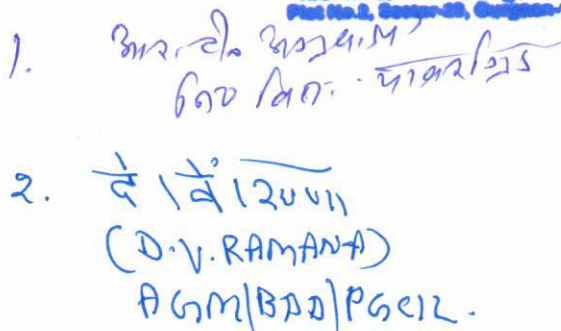 Plot No.2, Sector-29, Gurgaon-
1. आर. टी. अग्रवाल
पावरग्रिड
2. दे। वें। रमणा
(D.V. RAMANA)
AGM|BDD|PGCIL.